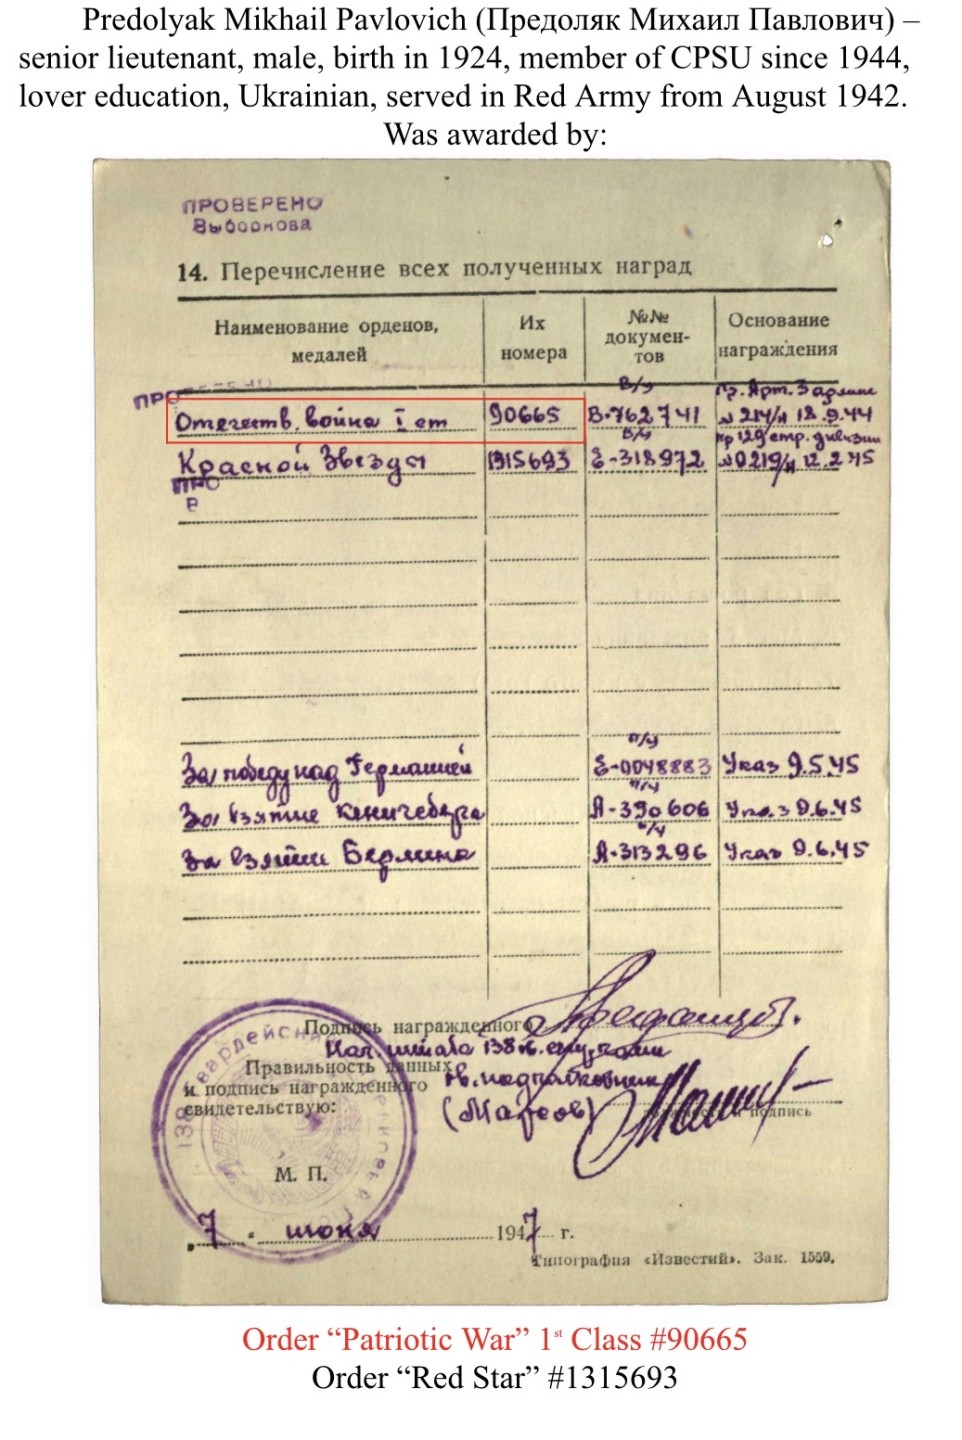 Predolyak Mikhail Pavlovich (Предоляк Михаил Павлович) –
senior lieutenant, male, birth in 1924, member of CPSU since 1944,
lover education, Ukrainian, served in Red Army from August 1942.
Was awarded by:
ПРОВЕРЕНО
14. Перечисление всех полученных наград
Наименование орденов, медалей
Их номера
№№ докумен-тов
Основание награждения
Отечеств. война I ст 90665 В-762741 №214/н 18.9.44
Красной Звезды 1315693 Е-318972 №0219/н 12.2.45
За победу над Германией Е-0048883 Указ 9.5.45
За взятие Кенигсберга А-390606 Указ 9.6.45
За взятие Берлина А-313296 Указ 9.6.45
Подпись награжденного
Правильность данных
и подпись награжденного
свидетельствую:
подпись
М. П.
7 июня 1947 г.
Типография «Известий». Зак. 1559.
Order “Patriotic War” 1st Class #90665
Order “Red Star” #1315693